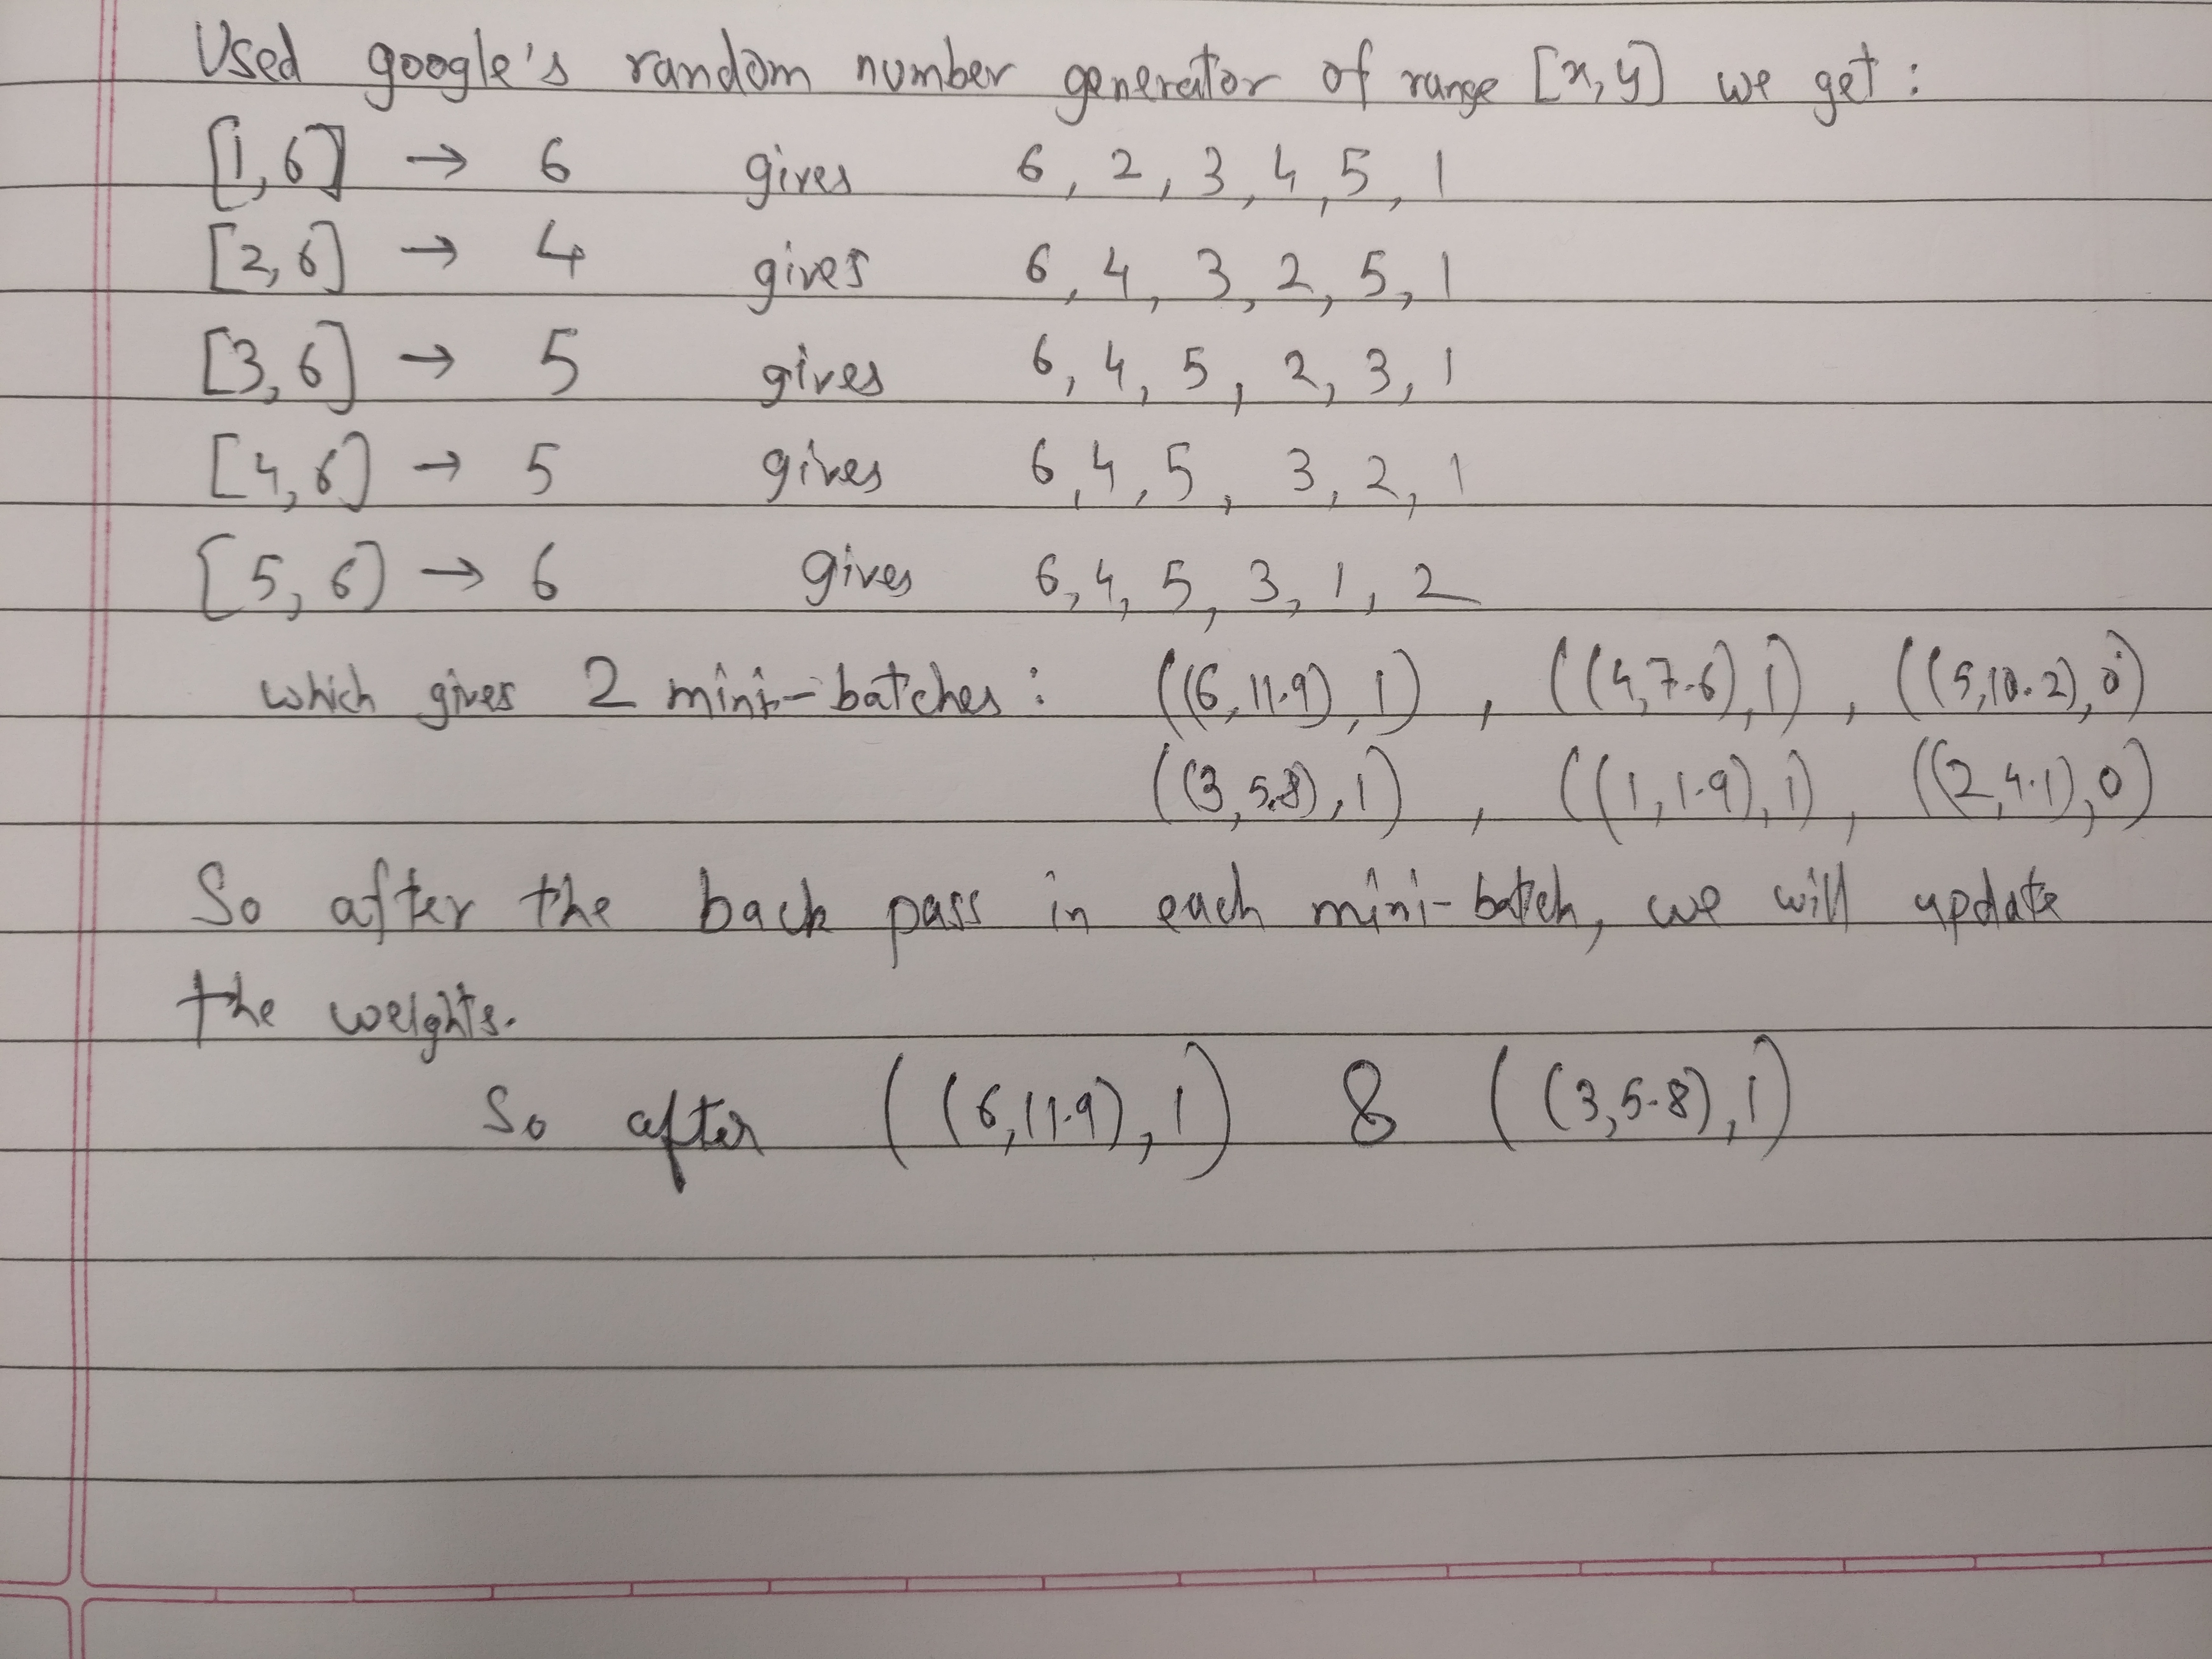 Used google's random number generator of range [x,y] we get :
[1,6] → 6 gives 6, 2, 3, 4, 5, 1
[2,6] → 4 gives 6, 4, 3, 2, 5, 1
[3,6] → 5 gives 6, 4, 5, 2, 3, 1
[4,6] → 5 gives 6, 4, 5, 3, 2, 1
[5,6] → 6 gives 6, 4, 5, 3, 1, 2
which gives 2 mini-batches : ((6,11.9),1) , ((4,7.6),1) , ((5,10.2),0)
((3,5.8),1) , ((1,1.9),1) , ((2,4.1),0)
So after the back pass in each mini-batch, we will update
the weights.
So after ((6,11.9),1) & ((3,5.8),1)